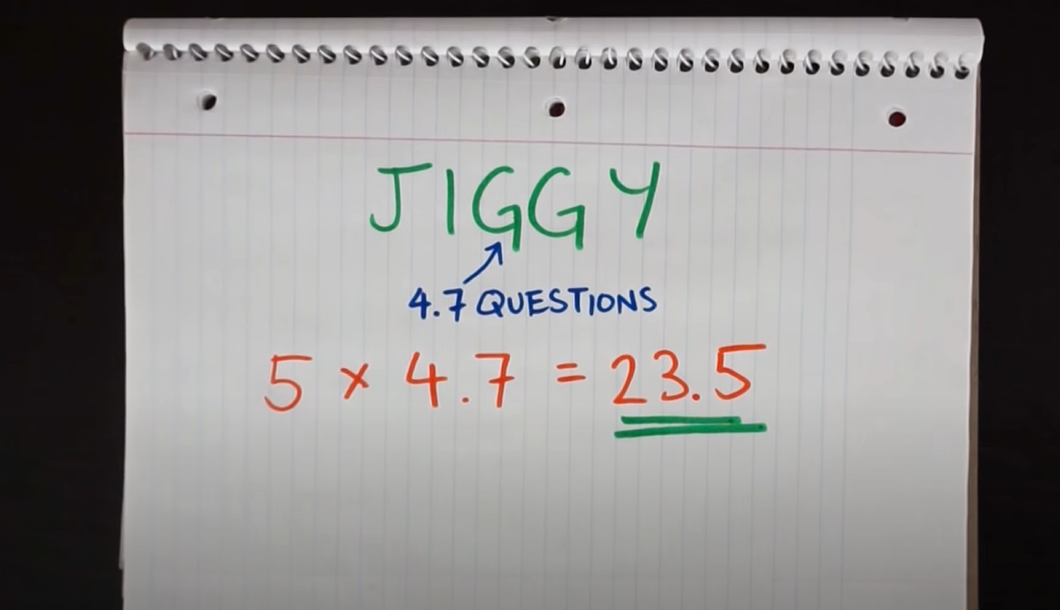 JIGGY
4.7 QUESTIONS
5 × 4.7 = 23.5